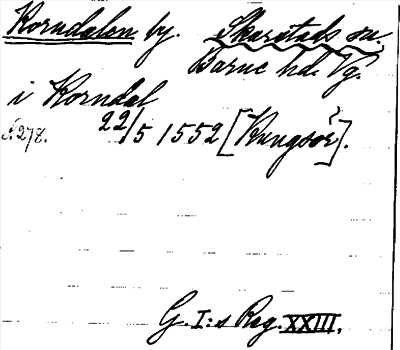 Korndalen by. Skarstads sn.
Barne hd. Vg.
i Korndal
S. 278. 22/5 1552 [Kungsör?].
G. I:s Reg. XXIII.